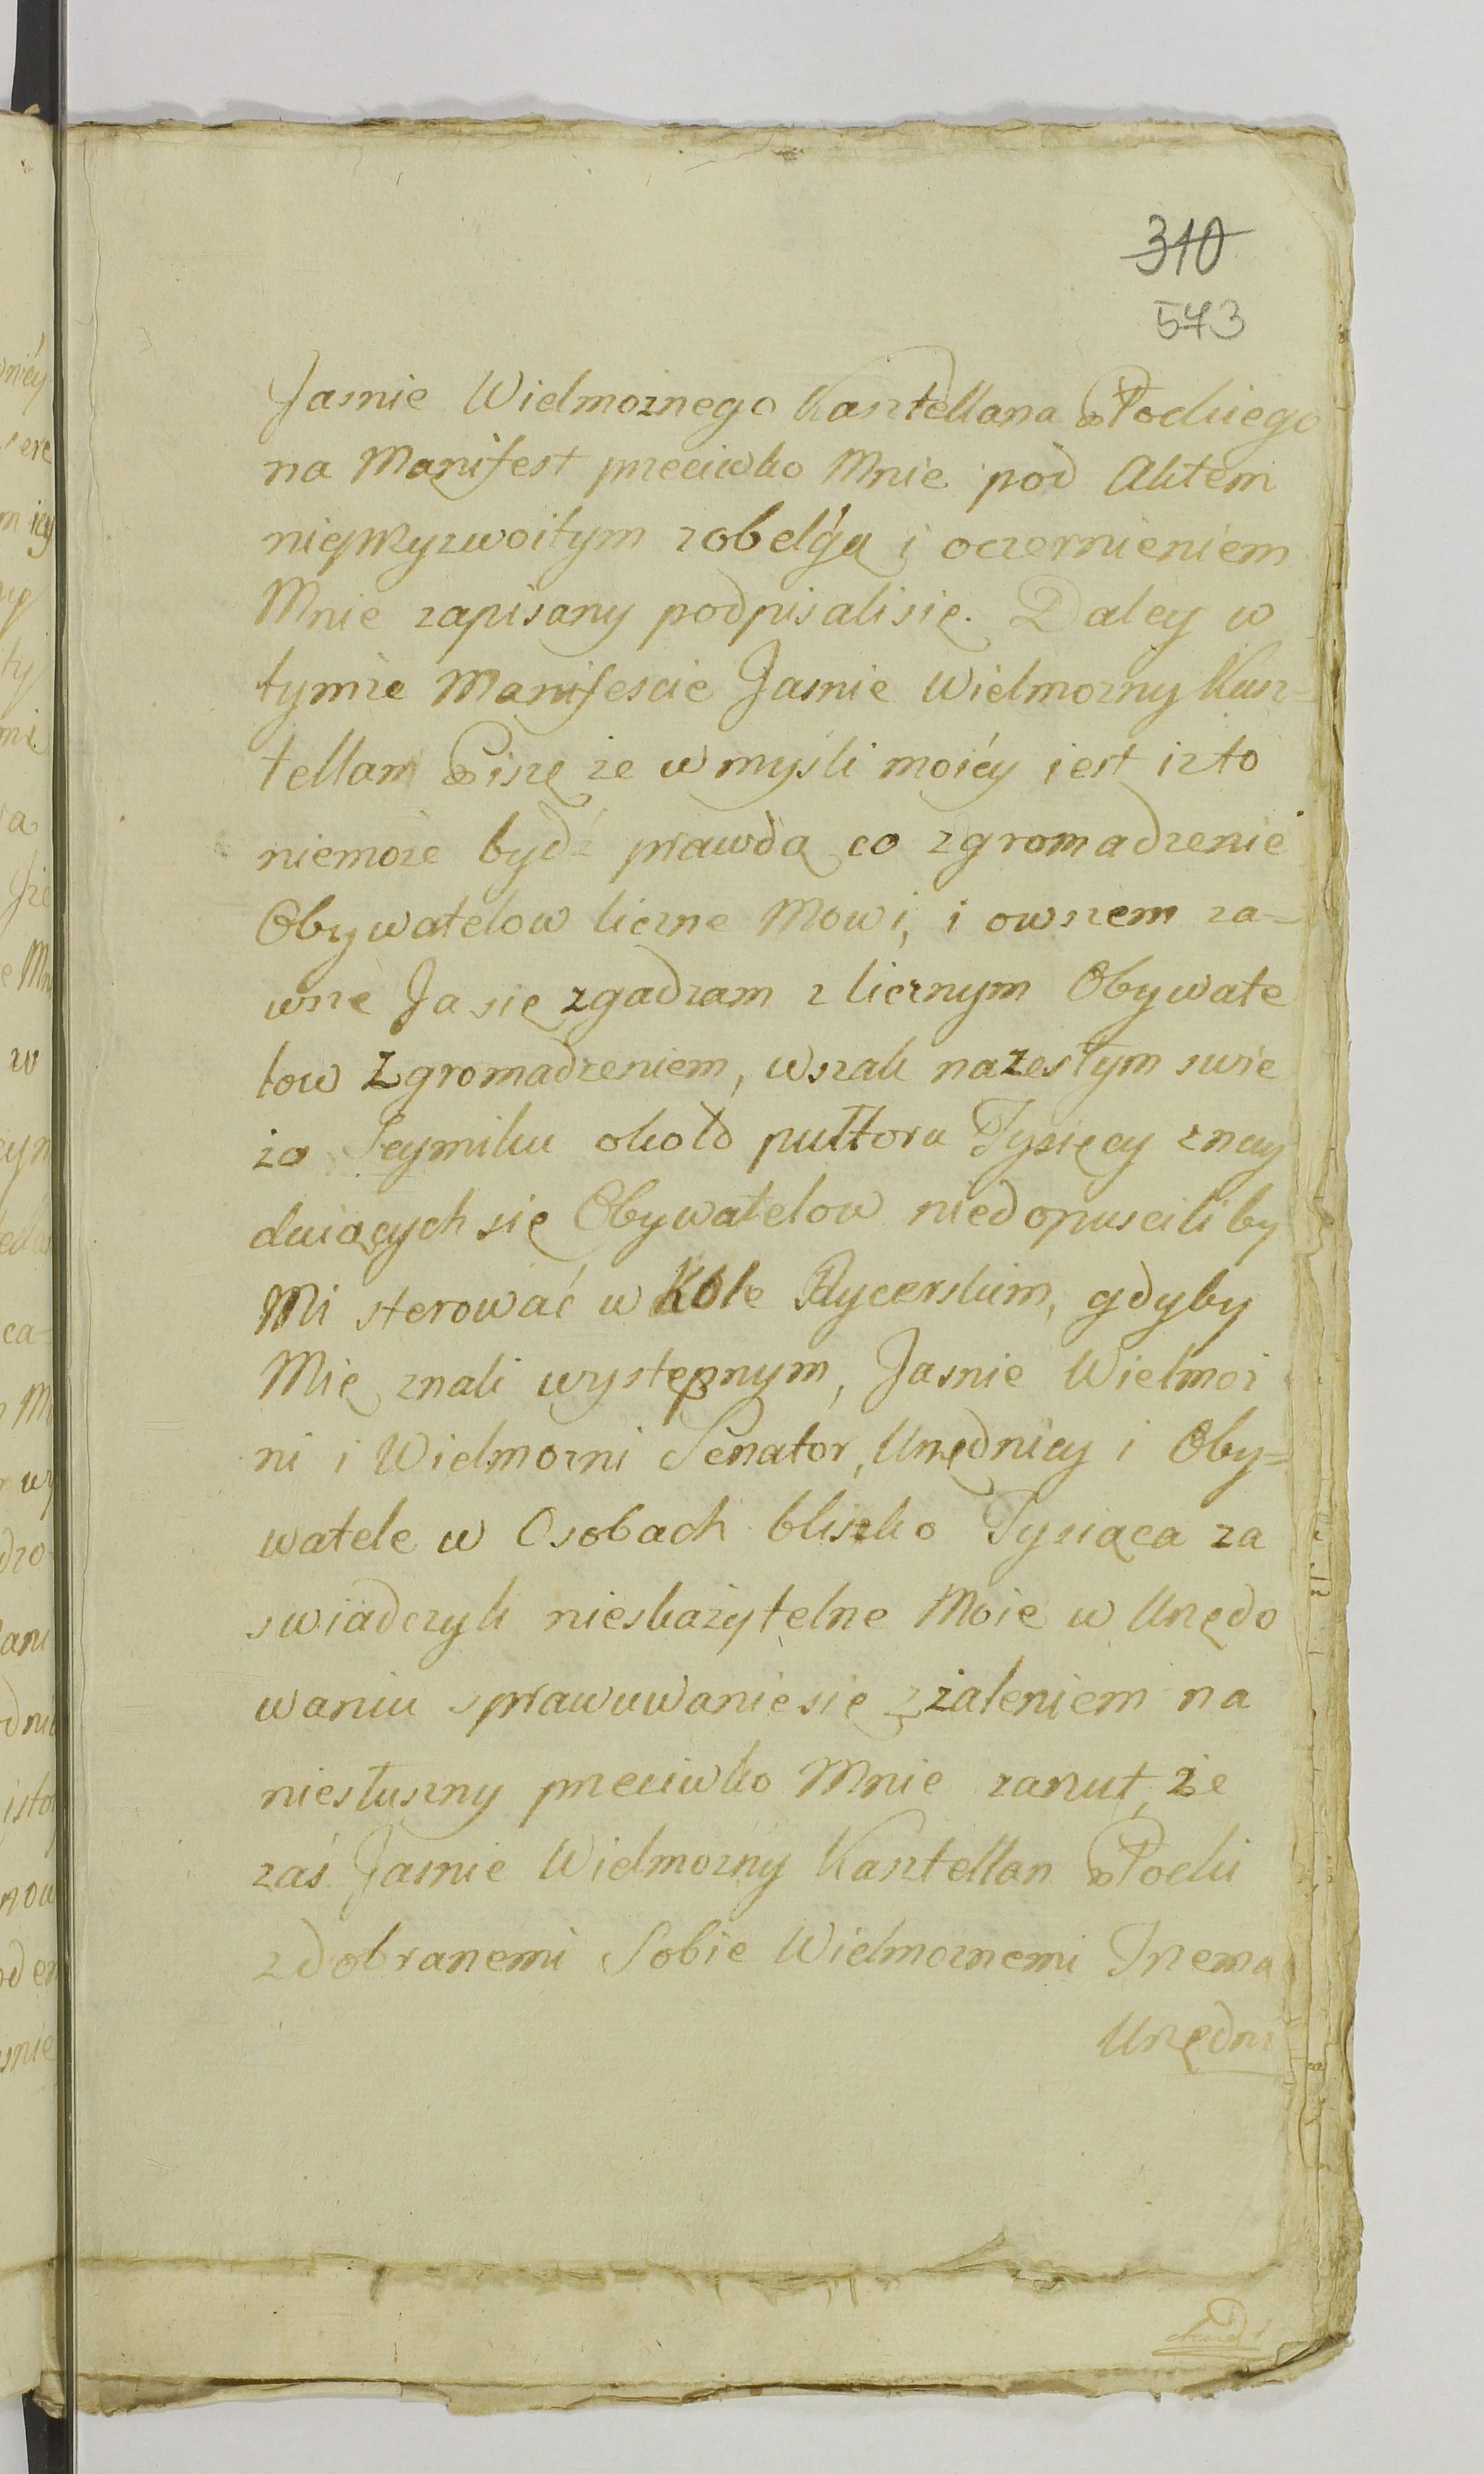 310
573
Jasnie Wielmoznego Kasztellana Płockiego
na Manifest przeciwko Mnie pod Aktem
nieprzyzwoitym zobelgą i oczernieniem
Mnie zapisany podpisali się. Daley w
tymże Manifescie Jasnie Wielmożny Kasz=
tellam Piszę ze w myśli moiéy iest iż to
niemoże bydź prawdą co zgromadzenie
Obywatelow liczne Mowi, i owszem za=
wsze Ja się zgadzam z licznym Obywate
low Zgromadzeniem, wszak nazeszłym swie
żo Seymiku około pułtora Tysięcy znay
duiących się Obywatelow niedopuscili by
Mi sterować w Kole Rycerskim, gdyby
Mię znali występnym, Jasnie Wielmoż
ni i Wielmożni Senator, Urzędnicy i Oby=
watele w Osobach blizko Tysiąca za
swiadczyli nieskażytelne Moie w Urzędo
waniu sprawuwanie się z żaleniem na
niesłuszny przeciwko Mnie zarzut, że
zaś Jasnie Wielmożny Kasztellan Płocki
z dobranemi Sobie Wielmożnemi Trzema
Urzędni